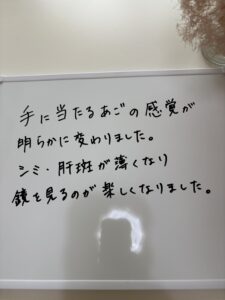 手に当たるあごの感覚が
明らかに変わりました。
シミ・肝斑が薄くなり
鏡を見るのが楽しくなりました。